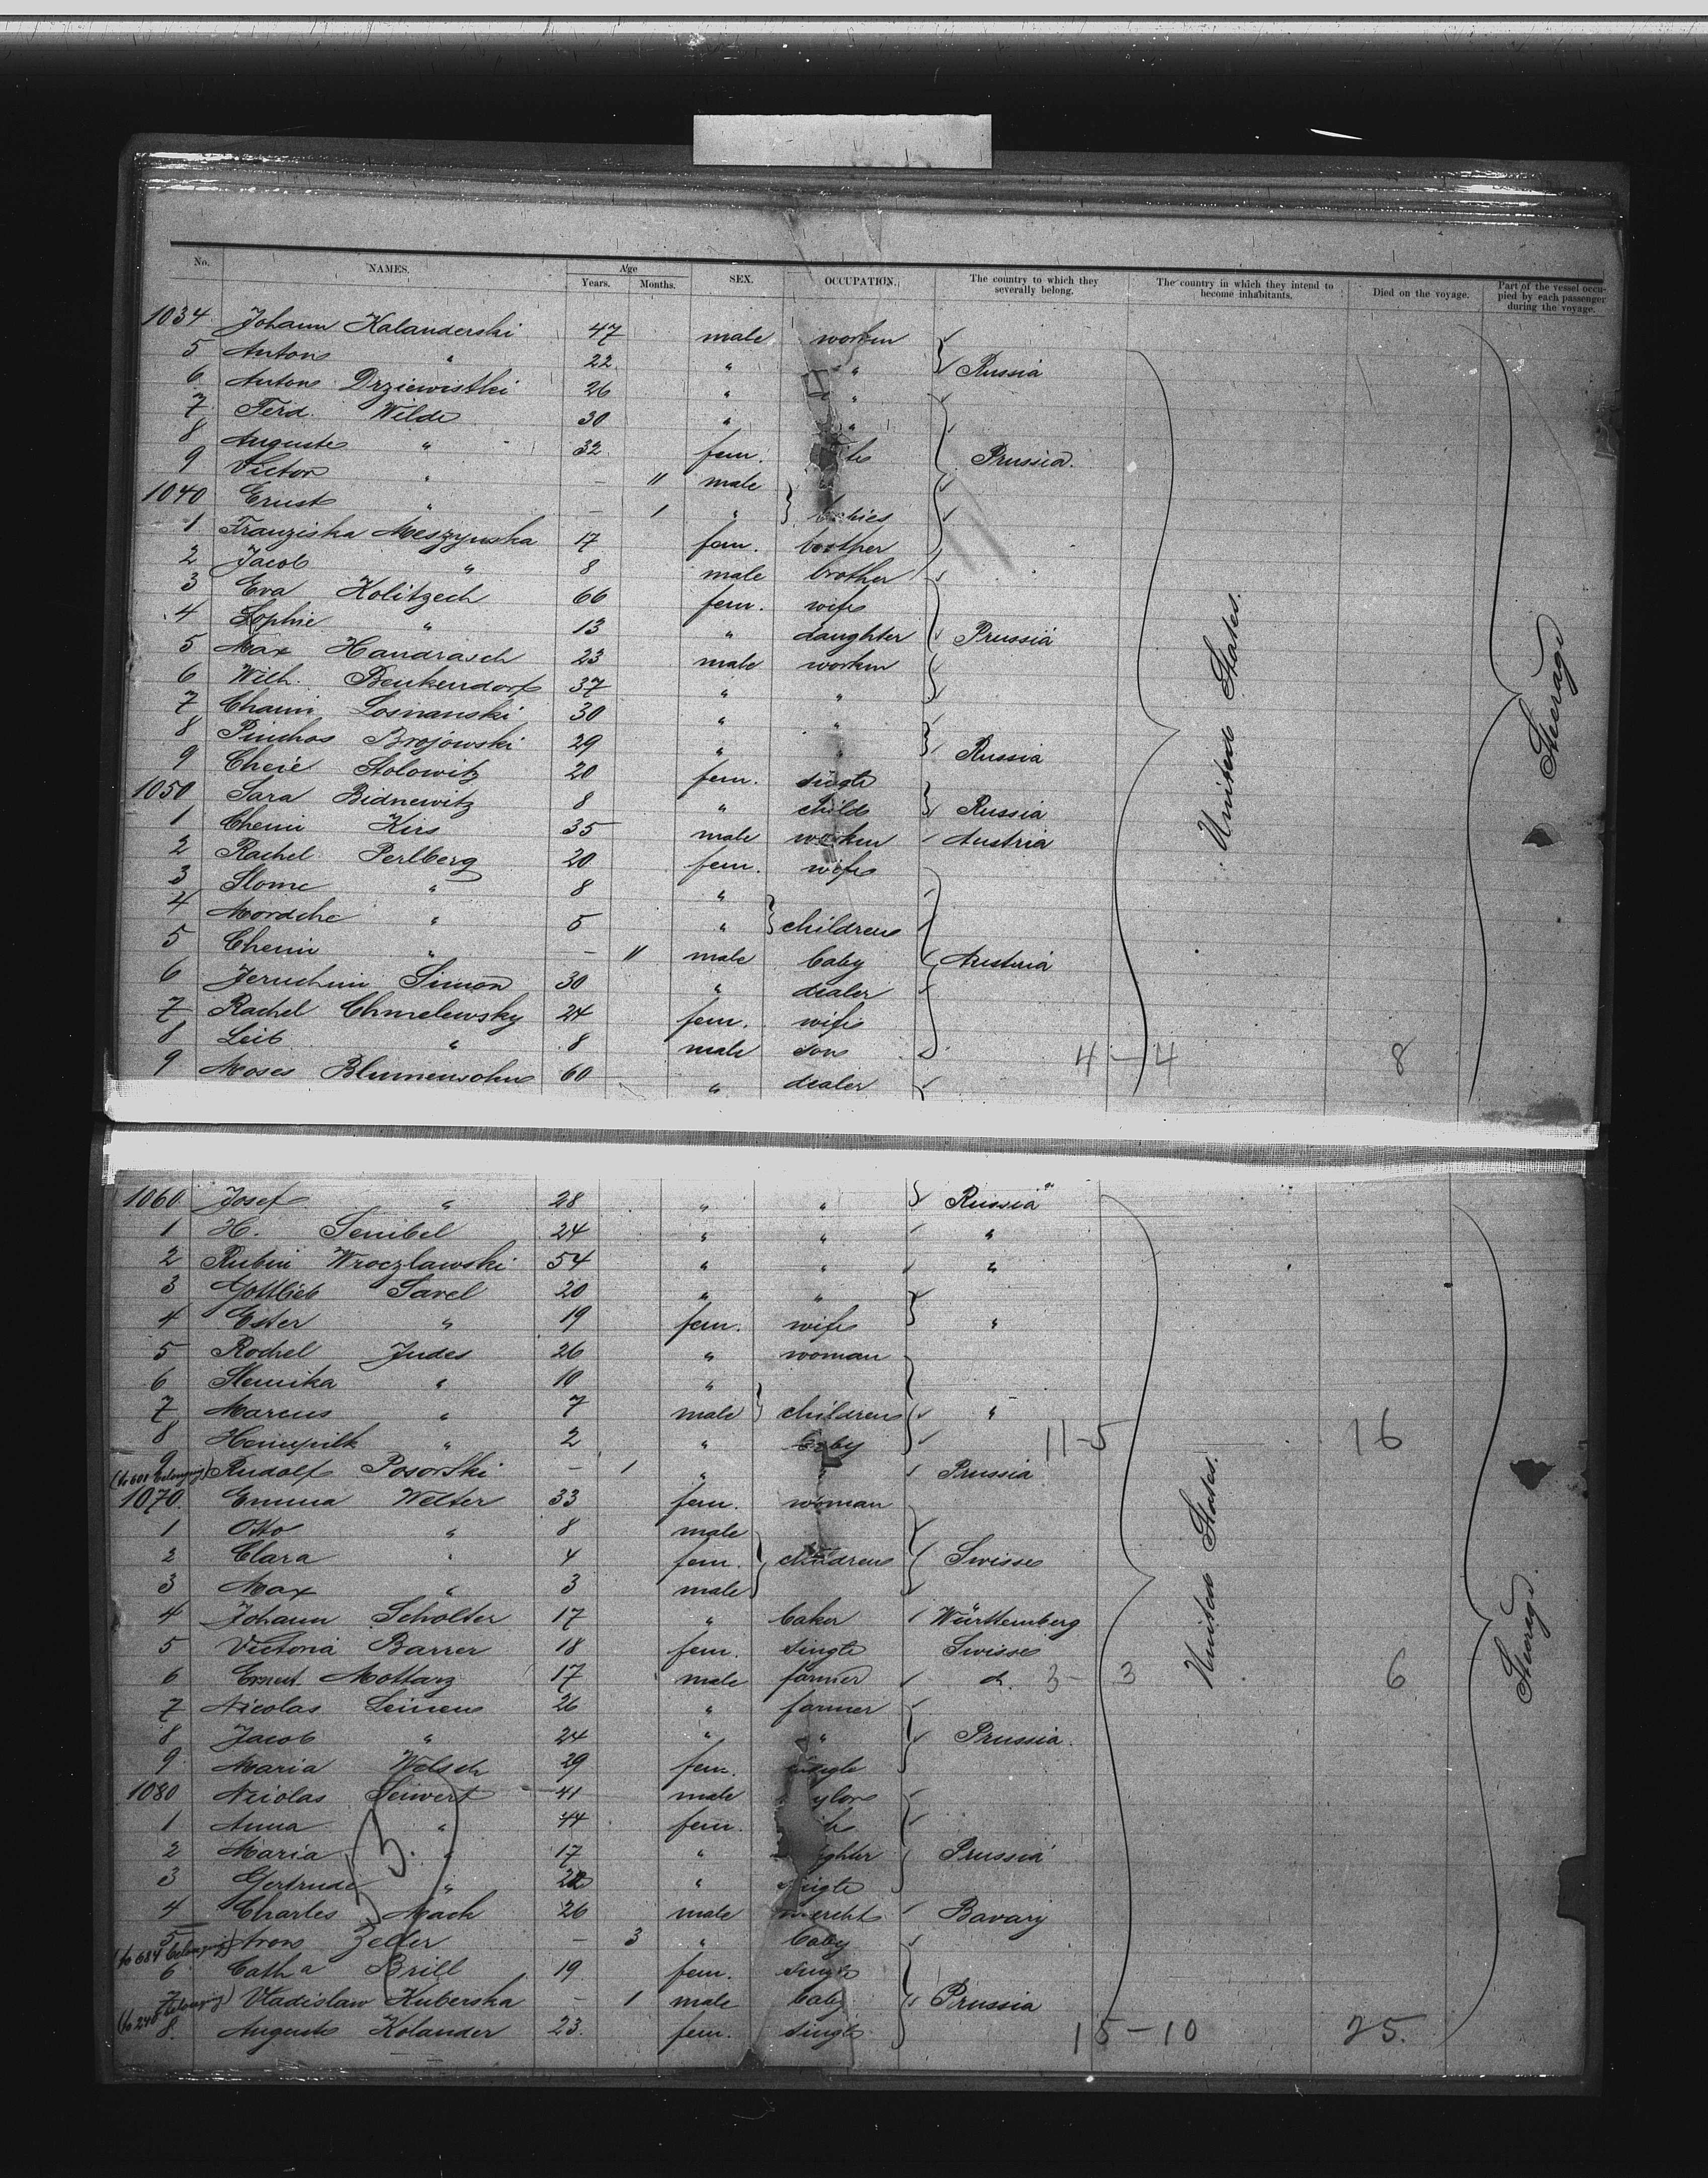 No. NAMES. Age Years. Months. SEX. OCCUPATION. The country to which they severally belong. The country in which they intend to become inhabitants. Died on the voyage. Part of the vessel occupied by each passenger during the voyage.
1034 Johann Kalanderski 47 male workm
5 Anton " 22 " " Russia
6 Anton Drziewistki 26 " "
7 Ferd. Wilde 30 " "
8 Auguste " 32 fem. Prussia.
9 Victor " — 11 male
1040 Ernst " — 1 " babies
1 Franziska Meszynska 17 fem.
2 Jacob " 8 male brother
3 Eva Kolitzech 66 fem. wife
4 Sophie " 13 " daughter Prussia
5 Max Handrasch 23 male workm
6 Wilh. Benkendorf 37 " "
7 Chaim Losnanski 30 " "
8 Pinchos Brojowski 29 " " Russia
9 Cheie Stolowitz 20 fem. single
1050 Sara Bidnewitz 8 " child Russia
1 Cheim Kirs 35 male workm Austria
2 Rachel Perlberg 20 fem. wife
3 Slome " 8 "
4 Mordche " 5 " children
5 Cheim " — 11 male baby Austria
6 Jeruchim Simon 30 " dealer
7 Rachel Chmelewsky 24 fem. wife
8 Leib " 8 male son 4 — 4 8
9 Moses Blumensohn 60 " dealer
United States.
Steerage
1060 Josef " 28 " " Russia
1 H. Semibel 24 " " "
2 Rubin Wroczlawski 54 " " "
3 Gottlieb Savel 20 " "
4 Ester " 19 fem. wife "
5 Rochel Judes 26 " woman
6 Slemika " 10 "
7 Marcus " 7 male children "
8 " 2 " baby 11-5 16
9 (to 601 belonging) Rudolf Posorski — 1 " " Prussia
1070. Emma Welter 33 fem. woman
1 Otto " 8 male
2 Clara " 4 fem. children Swisse
3 Max " 3 male
4 Johann Scholter 17 " baker Württemberg
5 Victoria Barrer 18 fem. single Swisse
6 Ernest Mottarz 17 male farmer d. 3 - 3 6
7 Nicolas Leinen 26 " farmer
8 Jacob " 24 " " Prussia.
9 Maria Welsch 29 fem. single
1080 Nicolas Seiwert 41 male
1 Anna " 44 fem.
2 Maria " 17 " Prussia
3 Gertrude " " single
4 Charles Mack 26 male mercht Bavary
5 (to 684 belonging) Aron Zeller — 3 " baby
6 Catha Brill 19 fem. single
7 (to 240 belonging) Vladislaw Kuberska — 1 male baby Prussia
8. Auguste Kolander 23. fem. single 15-10 25.
United States.
Steerage.